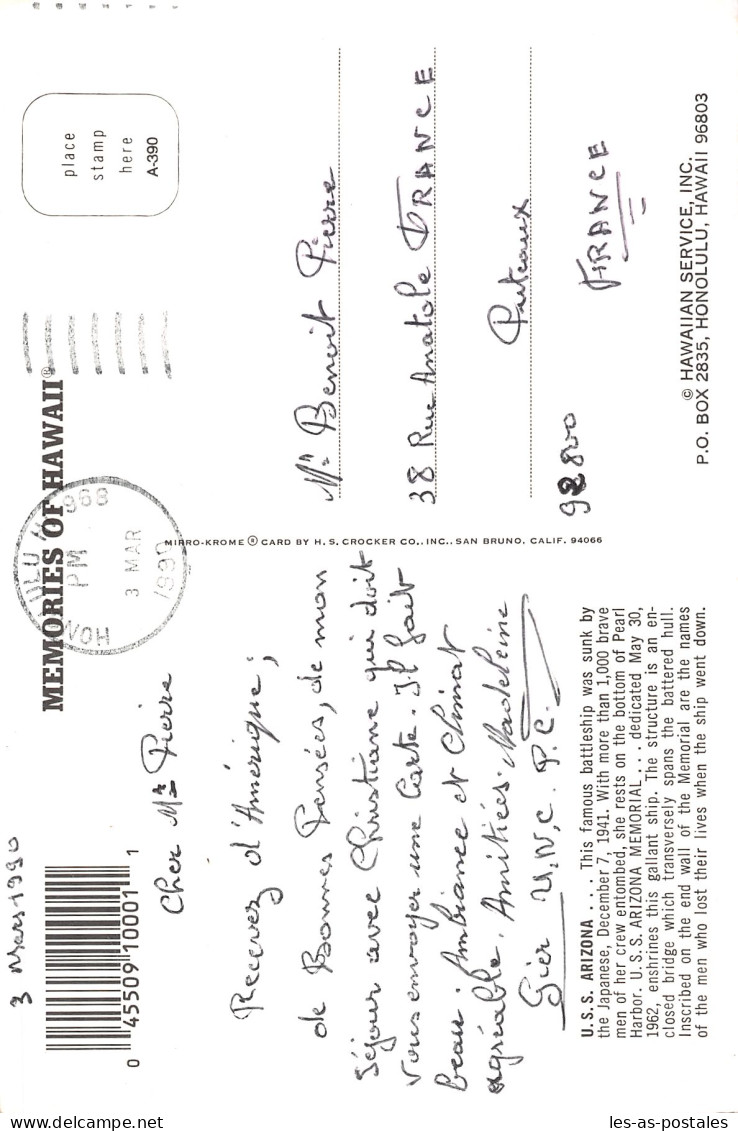 3 Mars 1990
0 45509 10001 1
MEMORIES OF HAWAII®
HONOLULU
968
PM
3 MAR
1990
place
stamp
here
A-390
Cher Mr Pierre
Recevez d'Amérique ;
de Bonnes Pensées, de mon
Séjour avec Christiane qui doit
Vous envoyer une Carte. Il fait
beau. Ambiance et Climat
agréable. Amitiées. Madeleine
Gier U.N.C. P.C.
Mr Benoit Pierre
38 Rue Anatole FRANCE
Puteaux
92800
FRANCE
MIRRO-KROME ® CARD BY H. S. CROCKER CO., INC., SAN BRUNO, CALIF. 94066
U.S.S. ARIZONA . . . This famous battleship was sunk by
the Japanese, December 7, 1941. With more than 1,000 brave
men of her crew entombed, she rests on the bottom of Pearl
Harbor. U.S.S. ARIZONA MEMORIAL . . . dedicated May 30,
1962, enshrines this gallant ship. The structure is an en-
closed bridge which transversely spans the battered hull.
Inscribed on the end wall of the Memorial are the names
of the men who lost their lives when the ship went down.
© HAWAIIAN SERVICE, INC.
P.O. BOX 2835, HONOLULU, HAWAII 96803
les-as-postales